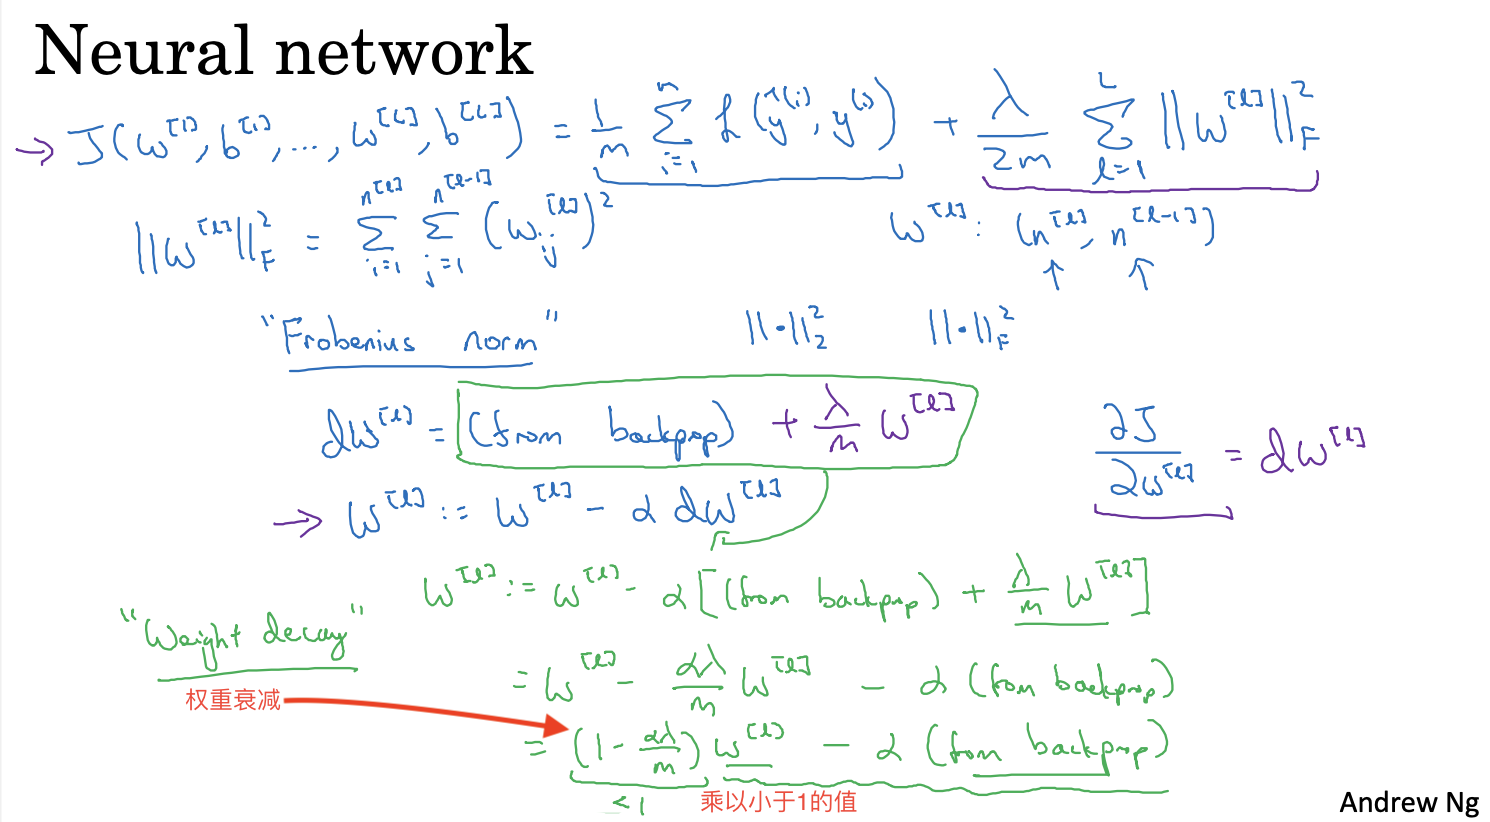 Neural network
→ J(w^[1], b^[1], ..., w^[L], b^[L]) = 1/m ∑_{i=1}^{n} L(ŷ^(i), y^(i)) + λ/2m ∑_{l=1}^{L} ||w^[l]||_F^2
||w^[l]||_F^2 = ∑_{i=1}^{n^[l]} ∑_{j=1}^{n^[l-1]} (w_ij^[l])^2 w^[l]: (n^[l], n^[l-1])
↑ ↑
"Frobenius norm" ||·||_2^2 ||·||_F^2
dw^[l] = (from backprop) + λ/m w^[l] ∂J/∂w^[l] = dw^[l]
→ w^[l] := w^[l] - α dw^[l]
w^[l] := w^[l] - α[(from backprop) + λ/m w^[l]]
"Weight decay"
= w^[l] - αλ/m w^[l] - α (from backprop)
权重衰减
= (1 - αλ/m) w^[l] - α (from backprop)
<1 乘以小于1的值
Andrew Ng